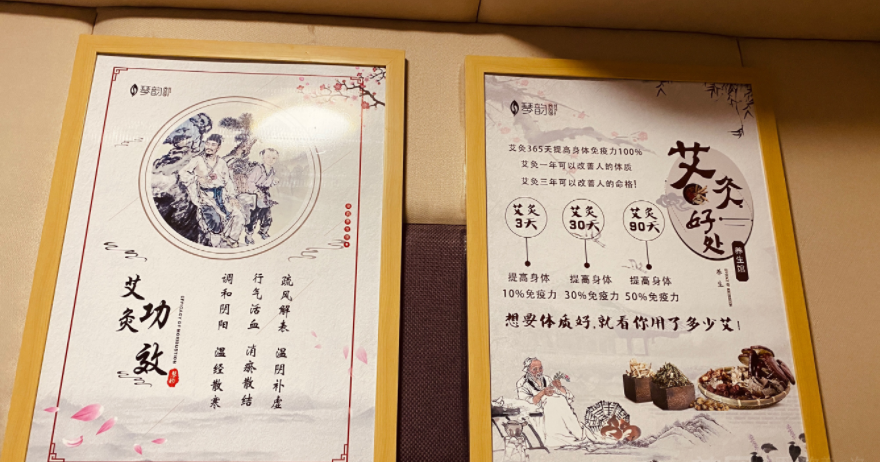 琴韵
艾灸
功效
EFFICACY OF MOXIBUSTION
疏风解表 温阴补虚
行气活血 消瘀散结
调和阴阳 温经散寒
琴韵
艾灸365天提高身体免疫力100%
艾灸一年可以改善人的体质
艾灸三年可以改善人的命格!
艾灸
好处
养生馆
养生
艾灸
3天
艾灸
30天
艾灸
90天
提高身体
10%免疫力
提高身体
30%免疫力
提高身体
50%免疫力
想要体质好,就看你用了多少艾!